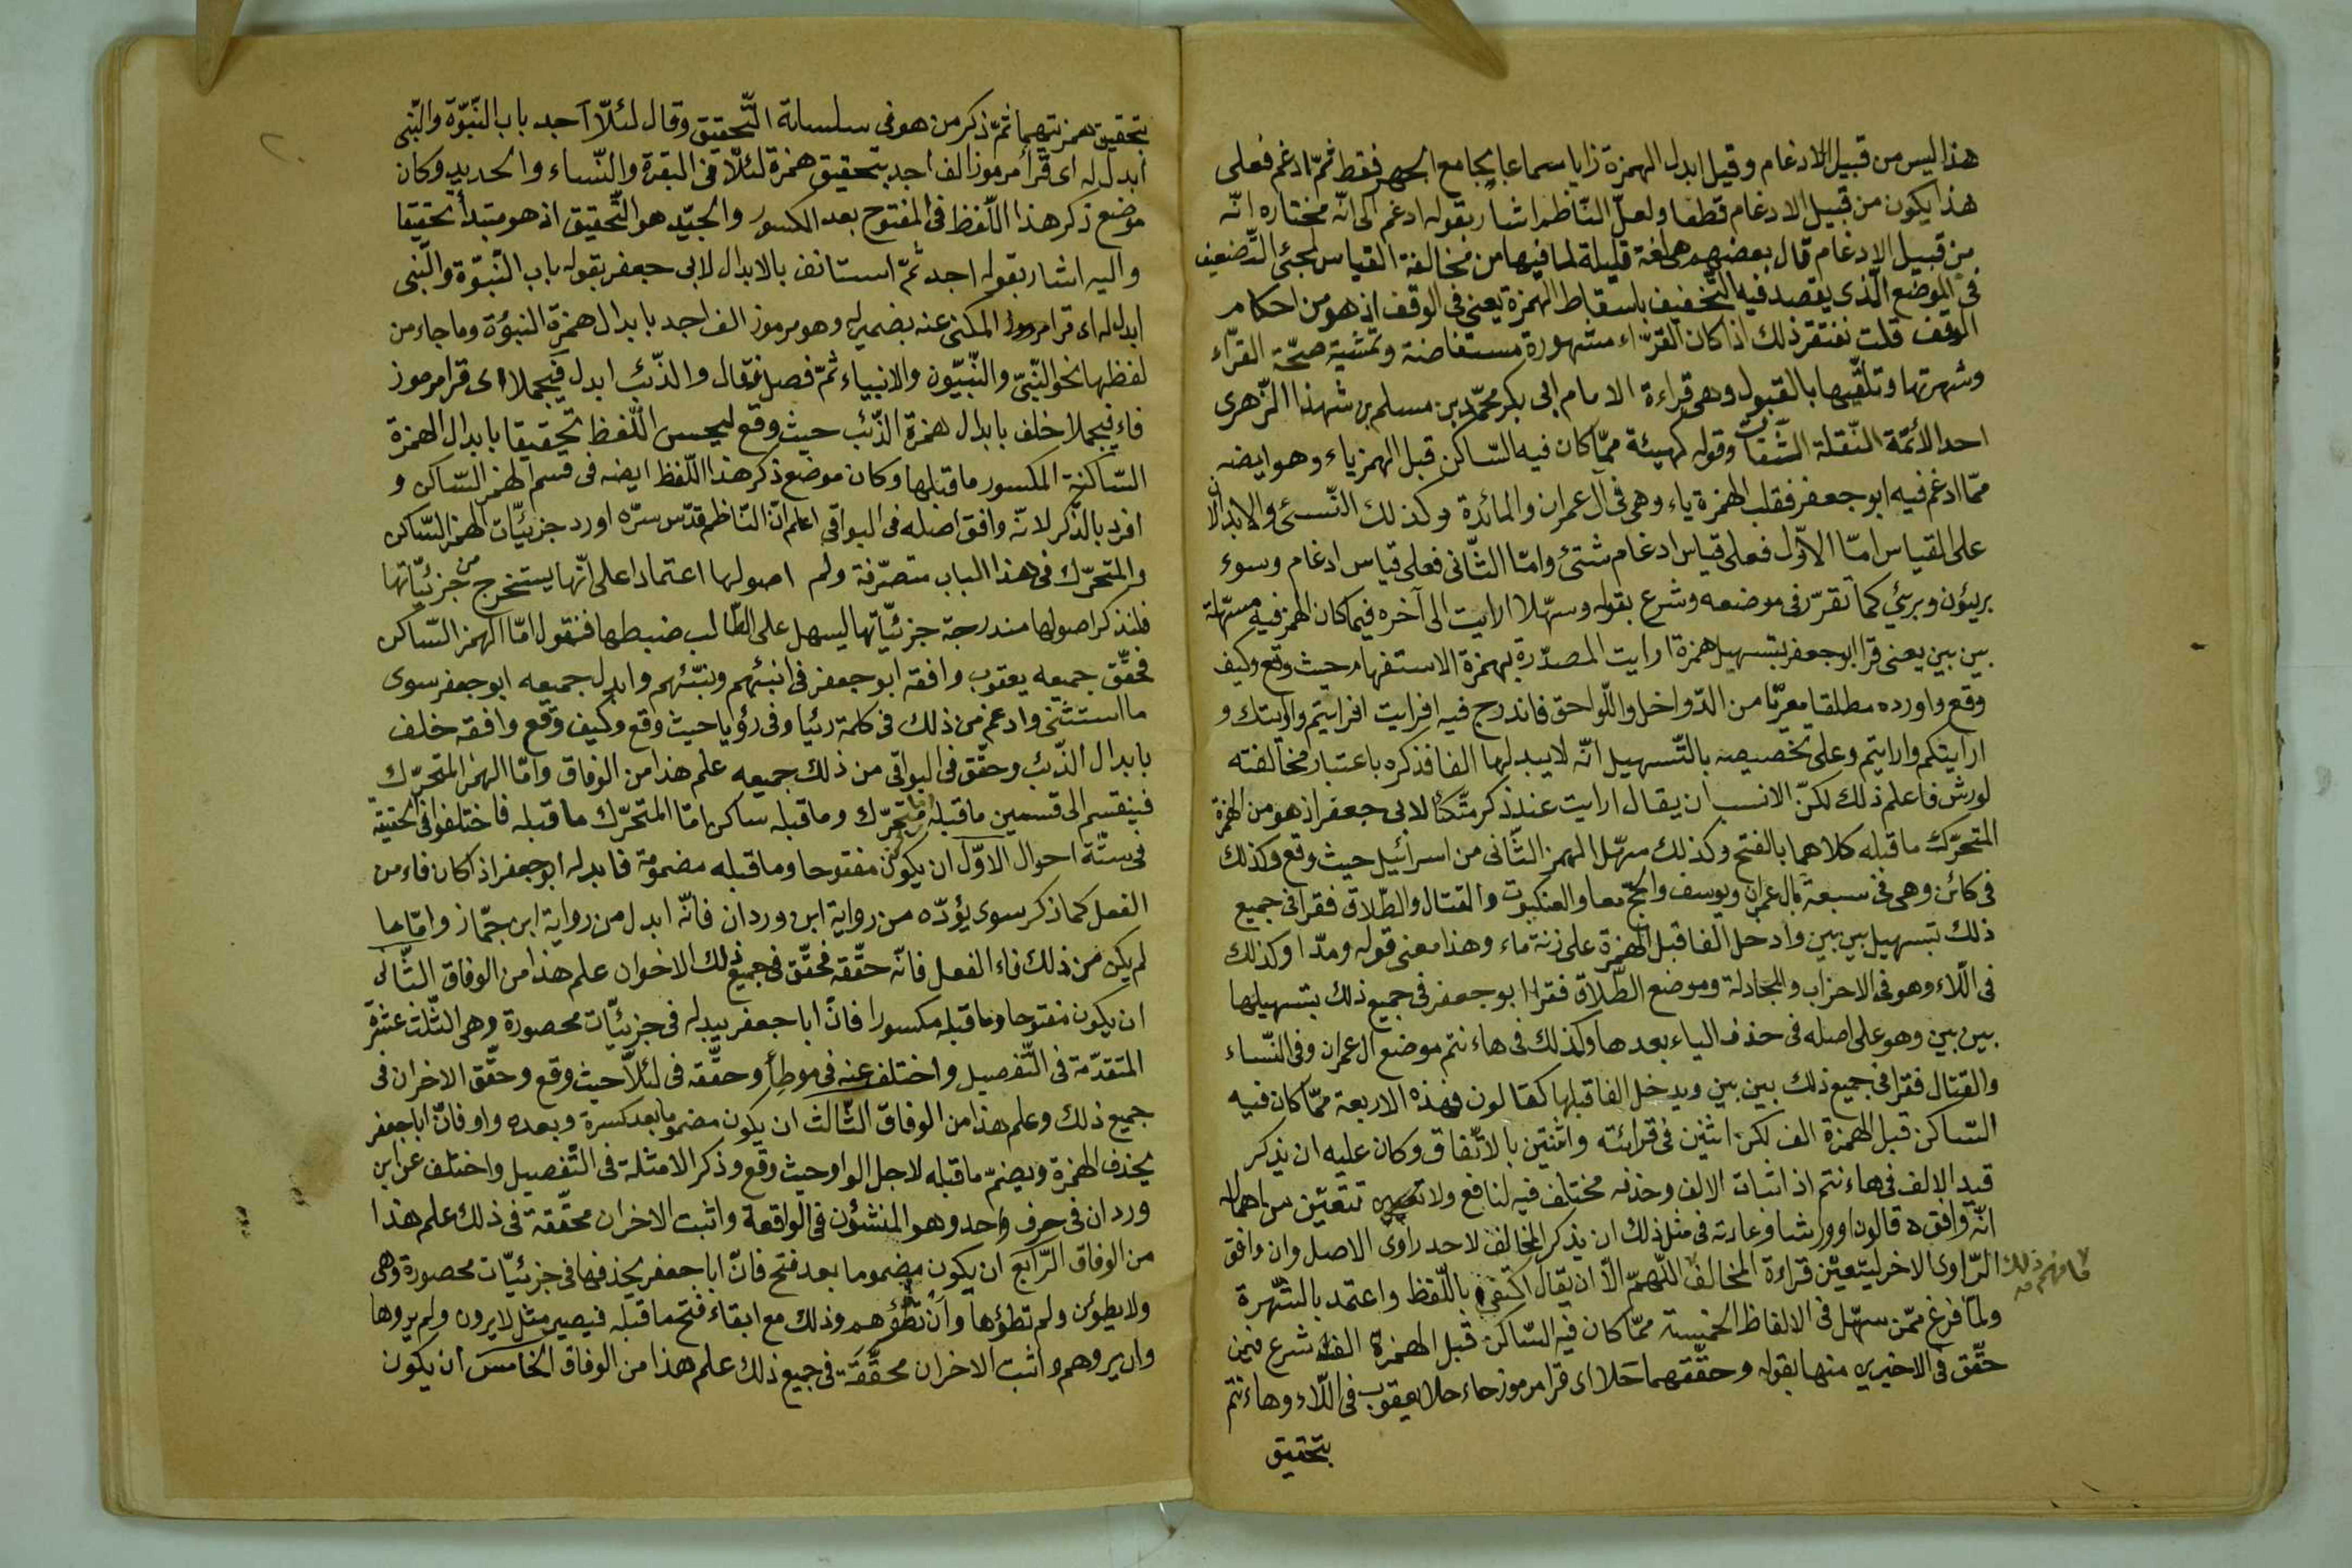 هذا ليس من قبيل الادغام وقيل ابدل الهمزة زايا سماعا بجامع الجهر فقط ثمّ ادغم فعلى
هذا يكون من قبيل الادغام قطعا ولعلّ النّاظم اشار بقوله ادغم الى انّه مختاره انّه
من قبيل الادغام قال بعضهم هى لغة قليلة لما فيها من مخالفة القياس لمجئ التّضعيف
فى الموضع الّذى يقصد فيه التّخفيف باسقاط الهمزة يعنى فى الوقف اذ هو من احكام
الوقف قلت نغتفر ذلك اذا كان القرّاء مشهورة مستفاضة وتمشية صحّة القرّاء
وشهرتها وتلقّيها بالقبول وهى قراءة الامام ابى بكر محمّد بن مسلم بن شهذا الزّهرى
احد الأئمّة النّقلة الثّقات وقوله كهيئة ممّا كان فيه السّاكن قبل الهمز ياء وهو ايضه
ممّا ادغم فيه ابو جعفر فقلب الهمزة ياء وهى فى آل عمران والمائدة وكذلك النّسئ والابدالان
على القياس امّا الاوّل فعلى قياس ادغام شئ وامّا الثّانى فعلى قياس ادغام وسوء
بريئون وبرئ كما تقرّر فى موضعه وشرع بقوله وسهّلا ارايت الى آخره فيما كان الهمز فيه مسهّلة
بين بين يعنى قرا ابو جعفر بتسهيل همزة ارايت المصدّرة بهمزة الاستفهام حيث وقع وكيف
وقع واورده مطلقا معرّا من الدّواخل واللّواحق فاندرج فيه افرايت افرايتم وارايتك و
ارايتكم وارايتم وعلى تخصيصه بالتّسهيل انّه لا يبدلها الفا فذكره باعتبار مخالفته
لورش فاعلم ذلك لكنّ الانسب ان يقال ارايت عند ذكر متّكئا لابى جعفر اذ هو من الهمزة
المتحرّك ما قبله كلاهما بالفتح وكذلك سهّل الهمز الثّانى من اسرائيل حيث وقع وكذلك
فى كائن وهى فى سبعة بال عمران ويوسف والحجّ معا والعنكبوت والقتال والطّلاق فقرا فى جميع
ذلك بتسهيل بين بين وادخل الفا قبل الهمزة على زنة ماء وهذا معنى قوله ومدّا وكذلك
فى اللّاء وهو فى الاحزاب والمجادلة وموضع الطّلاق فقرا ابو جعفر فى جميع ذلك بتسهيلها
بين بين وهو على اصله فى حذف الياء بعدها وكذلك فى هاءنتم موضع ال عمران وفى النّساء
والقتال فقرا فى جميع ذلك بين بين ويدخل الفا قبلها كقالون فهذه الاربعة ممّا كان فيه
السّاكن قبل الهمزة الف لكن اثنين فى قرائته واثنتين بالاتّفاق وكان عليه ان يذكر
قيد الالف فى هاءنتم اذ اثبات الالف وحذفه مختلف فيه لنافع ولا تتعيّن من اهماله
انّه وافقه قالون او ورشا وعادته فى مثل ذلك ان يذكر المخالف لاحد راوى الاصل وان وافق
الرّاوى الاخر ليتعيّن قراءة المخالف اللّهمّ الّا ان يقال اكتفى باللّفظ واعتمد بالشّهرة
فافهم ذلك
ولمّا فرغ ممّن سهّل فى الالفاظ الخمسة ممّا كان فيه السّاكن قبل الهمزة الف شرع فيمن
حقّق فى الاخيرين منها بقوله وحقّقهما حلا اى قرا مرموز حاء حلا يعقوب فى اللّاء وهاءنتم
بتحقيق
بتحقيق همزتيهما ثمّ ذكر من هو فى سلسلة التّحقيق وقال لئلّا اجد باب النّبوّة والنّبى
ابدل له اى قرا مرموز الف اجد بتحقيق همزة لئلّا فى البقرة والنّساء والحديد وكان
موضع ذكر هذا اللّفظ فى المفتوح بعد الكسور والجيّد هو التّحقيق اذ هو مبتدأ تحقيقا
واليه اشار بقوله اجد ثمّ استانف بالابدال لابى جعفر بقوله باب النّبوّة والنّبى
ابدل له اى قرا مرموز المكنى عنه بضمير له وهو مرموز الف اجد بابدال همزة النبؤة وما جاء من
لفظها نحو النّبىّ والنّبيّون والانبياء ثمّ فصل فقال والذّئب ابدل فيجملا اى قرا مرموز
فاء فيجملا خلف بابدال همزة الذّئب حيث وقع ليحسن اللّفظ تحقيقا بابدال الهمزة
السّاكنة المكسور ما قبلها وكان موضع ذكر هذا اللّفظ ايضه فى قسم الهمز السّاكن و
افرد بالذّكر لانّه وافق اصله فى البواقى اعلم انّ النّاظم قدّس سرّه اورد جزئيّات الهمز السّاكن
والمتحرّك فى هذا الباب متصرّفة ولم اصولها اعتمادا على انّها يستخرج من جزئيّاتها
فلنذكر اصولها مندرجة جزئيّاتها ليسهل على الطّالب ضبطها فنقول امّا الهمز السّاكن
فحقّق جميعه يعقوب وافقه ابو جعفر فى انبئهم ونبّئهم وابدل جميعه ابو جعفر سوى
ما استثنى وادغم من ذلك فى كلمة رئيا وفى رؤيا حيث وقع وكيف وقع وافقه خلف
بابدال الذّئب وحقّق فى البواقى من ذلك جميعه علم هذا من الوفاق وامّا الهمز المتحرّك
فينقسم الى قسمين ما قبله متحرّك وما قبله ساكن امّا المتحرّك ما قبله فاختلفوا فى تحقيقه
فى ستّة احوال الاوّل ان يكون مفتوحا وما قبله مضمومة فابدله ابو جعفر اذا كان فاء من
الفعل كما ذكر سوى يؤدّه من رواية ابن وردان فانّه ابدل من رواية ابن جمّاز وامّا ما
لم يكن من ذلك فاء الفعل فانّه حقّقه فحقّق فى جميع ذلك الاخران علم هذا من الوفاق الثّانى
ان يكون مفتوحا وما قبله مكسورا فانّ ابا جعفر يبدله فى جزئيّات محصورة وهى الثّلث عشرة
المتقدّمة فى التّفصيل واختلف عنه فى موطئا وحقّقه فى لئلّا حيث وقع وحقّق الاخران فى
جميع ذلك وعلم هذا من الوفاق الثّالث ان يكون مضموما بعد كسرة وبعده واو فانّ ابا جعفر
يحذف الهمزة ويضمّ ما قبله لاجل الواو حيث وقع وذكر الامثلة فى التّفصيل واختلف عن ابن
وردان فى حرف واحد وهو المنشؤن فى الواقعة واثبت الاخران محقّقة فى ذلك علم هذا
من الوفاق الرّابع ان يكون مضموما بعد فتح فانّ ابا جعفر يحذفها فى جزئيّات محصورة وهى
ولا يطوئن ولم تطؤها وان تطؤهم وذلك مع ابقاء فتح ما قبله فيصير مثل لا يرون ولم يروها
وان يروهم واثبت الاخران محقّقة فى جميع ذلك علم هذا من الوفاق الخامس ان يكون